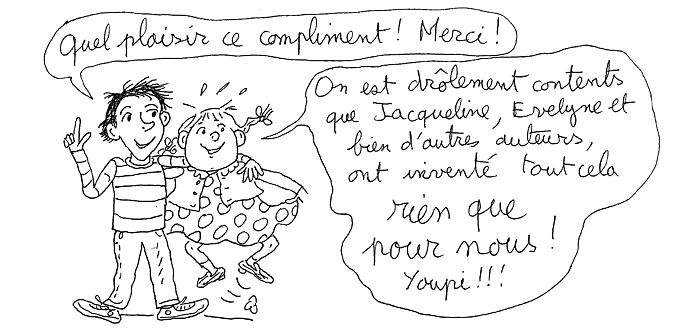 Quel plaisir ce compliment ! Merci !
On est drôlement contents
que Jacqueline, Evelyne et
bien d'autres auteurs,
ont inventé tout cela
rien que
pour nous !
Youpi !!!